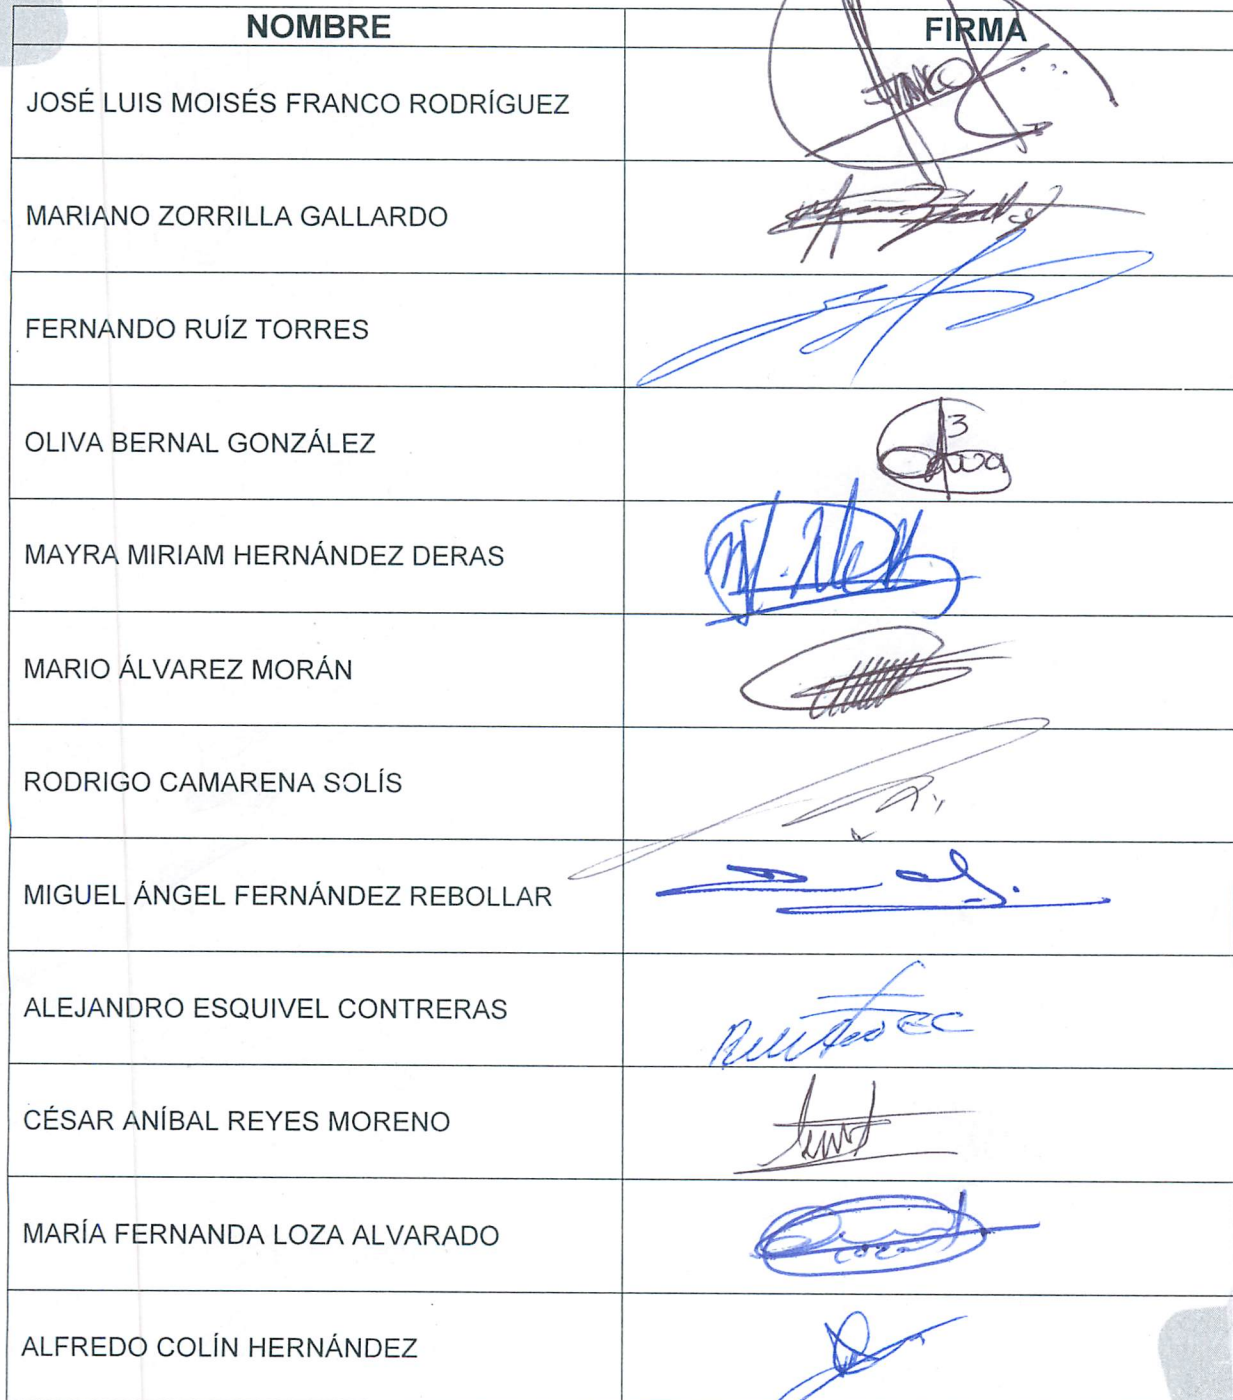 NOMBRE FIRMA
JOSÉ LUIS MOISÉS FRANCO RODRÍGUEZ FRANCO
MARIANO ZORRILLA GALLARDO
FERNANDO RUÍZ TORRES
OLIVA BERNAL GONZÁLEZ
MAYRA MIRIAM HERNÁNDEZ DERAS
MARIO ÁLVAREZ MORÁN
RODRIGO CAMARENA SOLÍS
MIGUEL ÁNGEL FERNÁNDEZ REBOLLAR
ALEJANDRO ESQUIVEL CONTRERAS
CÉSAR ANÍBAL REYES MORENO
MARÍA FERNANDA LOZA ALVARADO
ALFREDO COLÍN HERNÁNDEZ